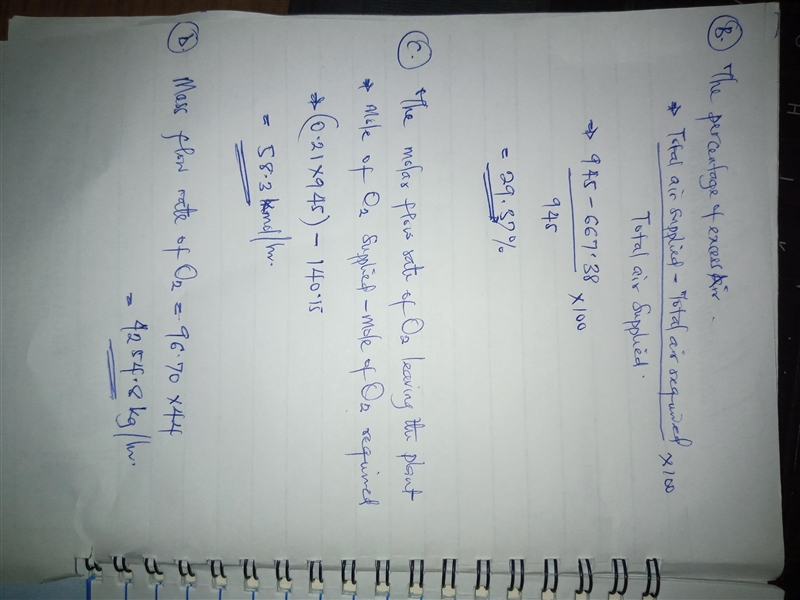 B. The percentage of excess Air.
⇒ Total air supplied - Total air required × 100
Total air supplied.
⇒ 945 - 667.38 × 100
945
= 29.37%
C. The molar flow rate of O2 leaving the plant
⇒ Mole of O2 supplied - mole of O2 required
⇒ (0.21 × 945) - 140.15
= 58.3 kmol/hr.
D. Mass flow rate of O2 = 96.70 × 44
= 4254.8 kg/hr.